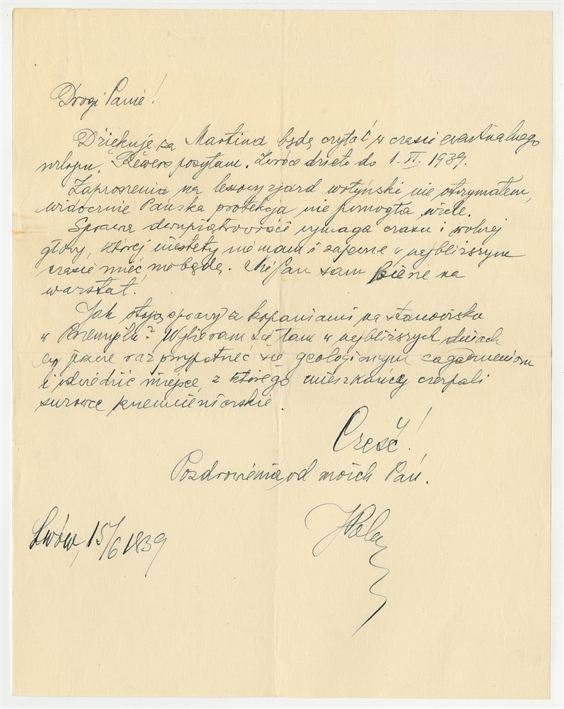 Drogi Panie!
Dziękuję za Martina będę czytać w czasie ewentualnego
urlopu. Rewers posyłam. Zwrócę dzieło do 1. VI. 1939.
Zaproszenia na lessowy zjazd wołyński nie otrzymałem,
widocznie Pańska protekcja nie pomogła wiele.
Sprawa dwupiętrowości wymaga czasu i wolnej
głowy, której niestety nie mam i zapewne w najbliższym
czasie mieć nie będę. Niech Pan sam bierze na
warsztat.
Jak stoją sprawy z kopaniami na stanowisku
w Przemyślu? Wybieram się tam w najbliższych dniach
by raz przypatrzeć się geologicznym zagadnieniom
i zwiedzić miejsce, z którego mieszkańcy czerpali
surowce krzemieniarskie.
Cześć!
Pozdrowienia od moich Pań.
Lwów, 15/6 1939